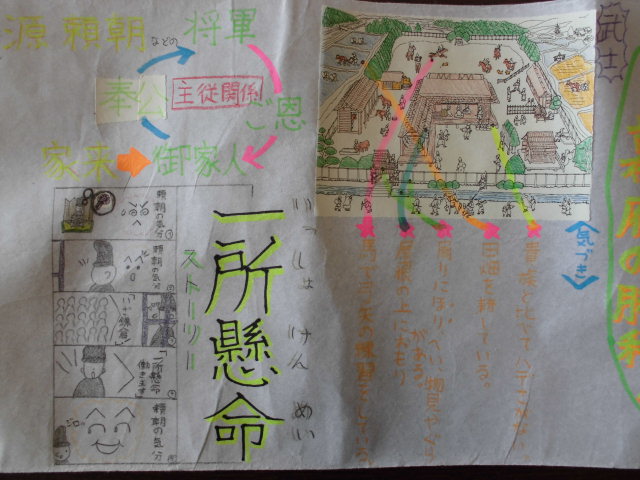 武士
源頼朝などの将軍
奉公
主従関係
ご恩
家来
御家人
〈気づき〉
貴族と比べてハデさがない。
田畑を耕している。
周りにほり、へい、物見やぐらがある。
屋根の上におもり
馬で弓矢の練習をしている。
いっしょけんめい
一所懸命
ストーリー
頼朝の気分
頼朝の気分
いざ鎌倉
「一所懸命働きます」
頼朝の気分